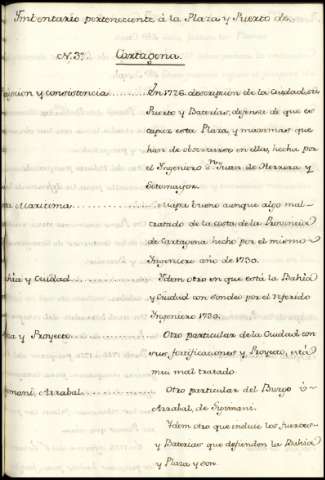 Imbentario perteneciente á la Plaza y Puerto de
N. 3º. Cartagena.
ripcion y consistencia .......... En 1726. descripcion de la Ciudad, su
Puerto y Baterias, defensa de que es
capáz esta Plaza, y maximas que
han de observarse en ellas, hecha por
el Ingeniero Dn. Juan de Herrera y
Sotomayor.
pa Maritima .......... Mapa bueno aunque algo mal-
tratado de la costa de la Provincia
de Cartagena hecho por el mismo
Ingeniero año de 1730.
ahia y Ciudad .......... Ydem otro en que está la Bahia
y Ciudad con sondeo por el referido
Ingeniero 1730.
y Proyecto .......... Otro particular de la Ciudad con
sus fortificaciones y Proyecto, está
mui mal tratado.
semani, Arrabal .......... Otro particular del Burgo ó
Arrabal, de Gysmani.
Ydem otro que incluie los fuertes
y Baterias que defienden la Bahia
y Plaza y con